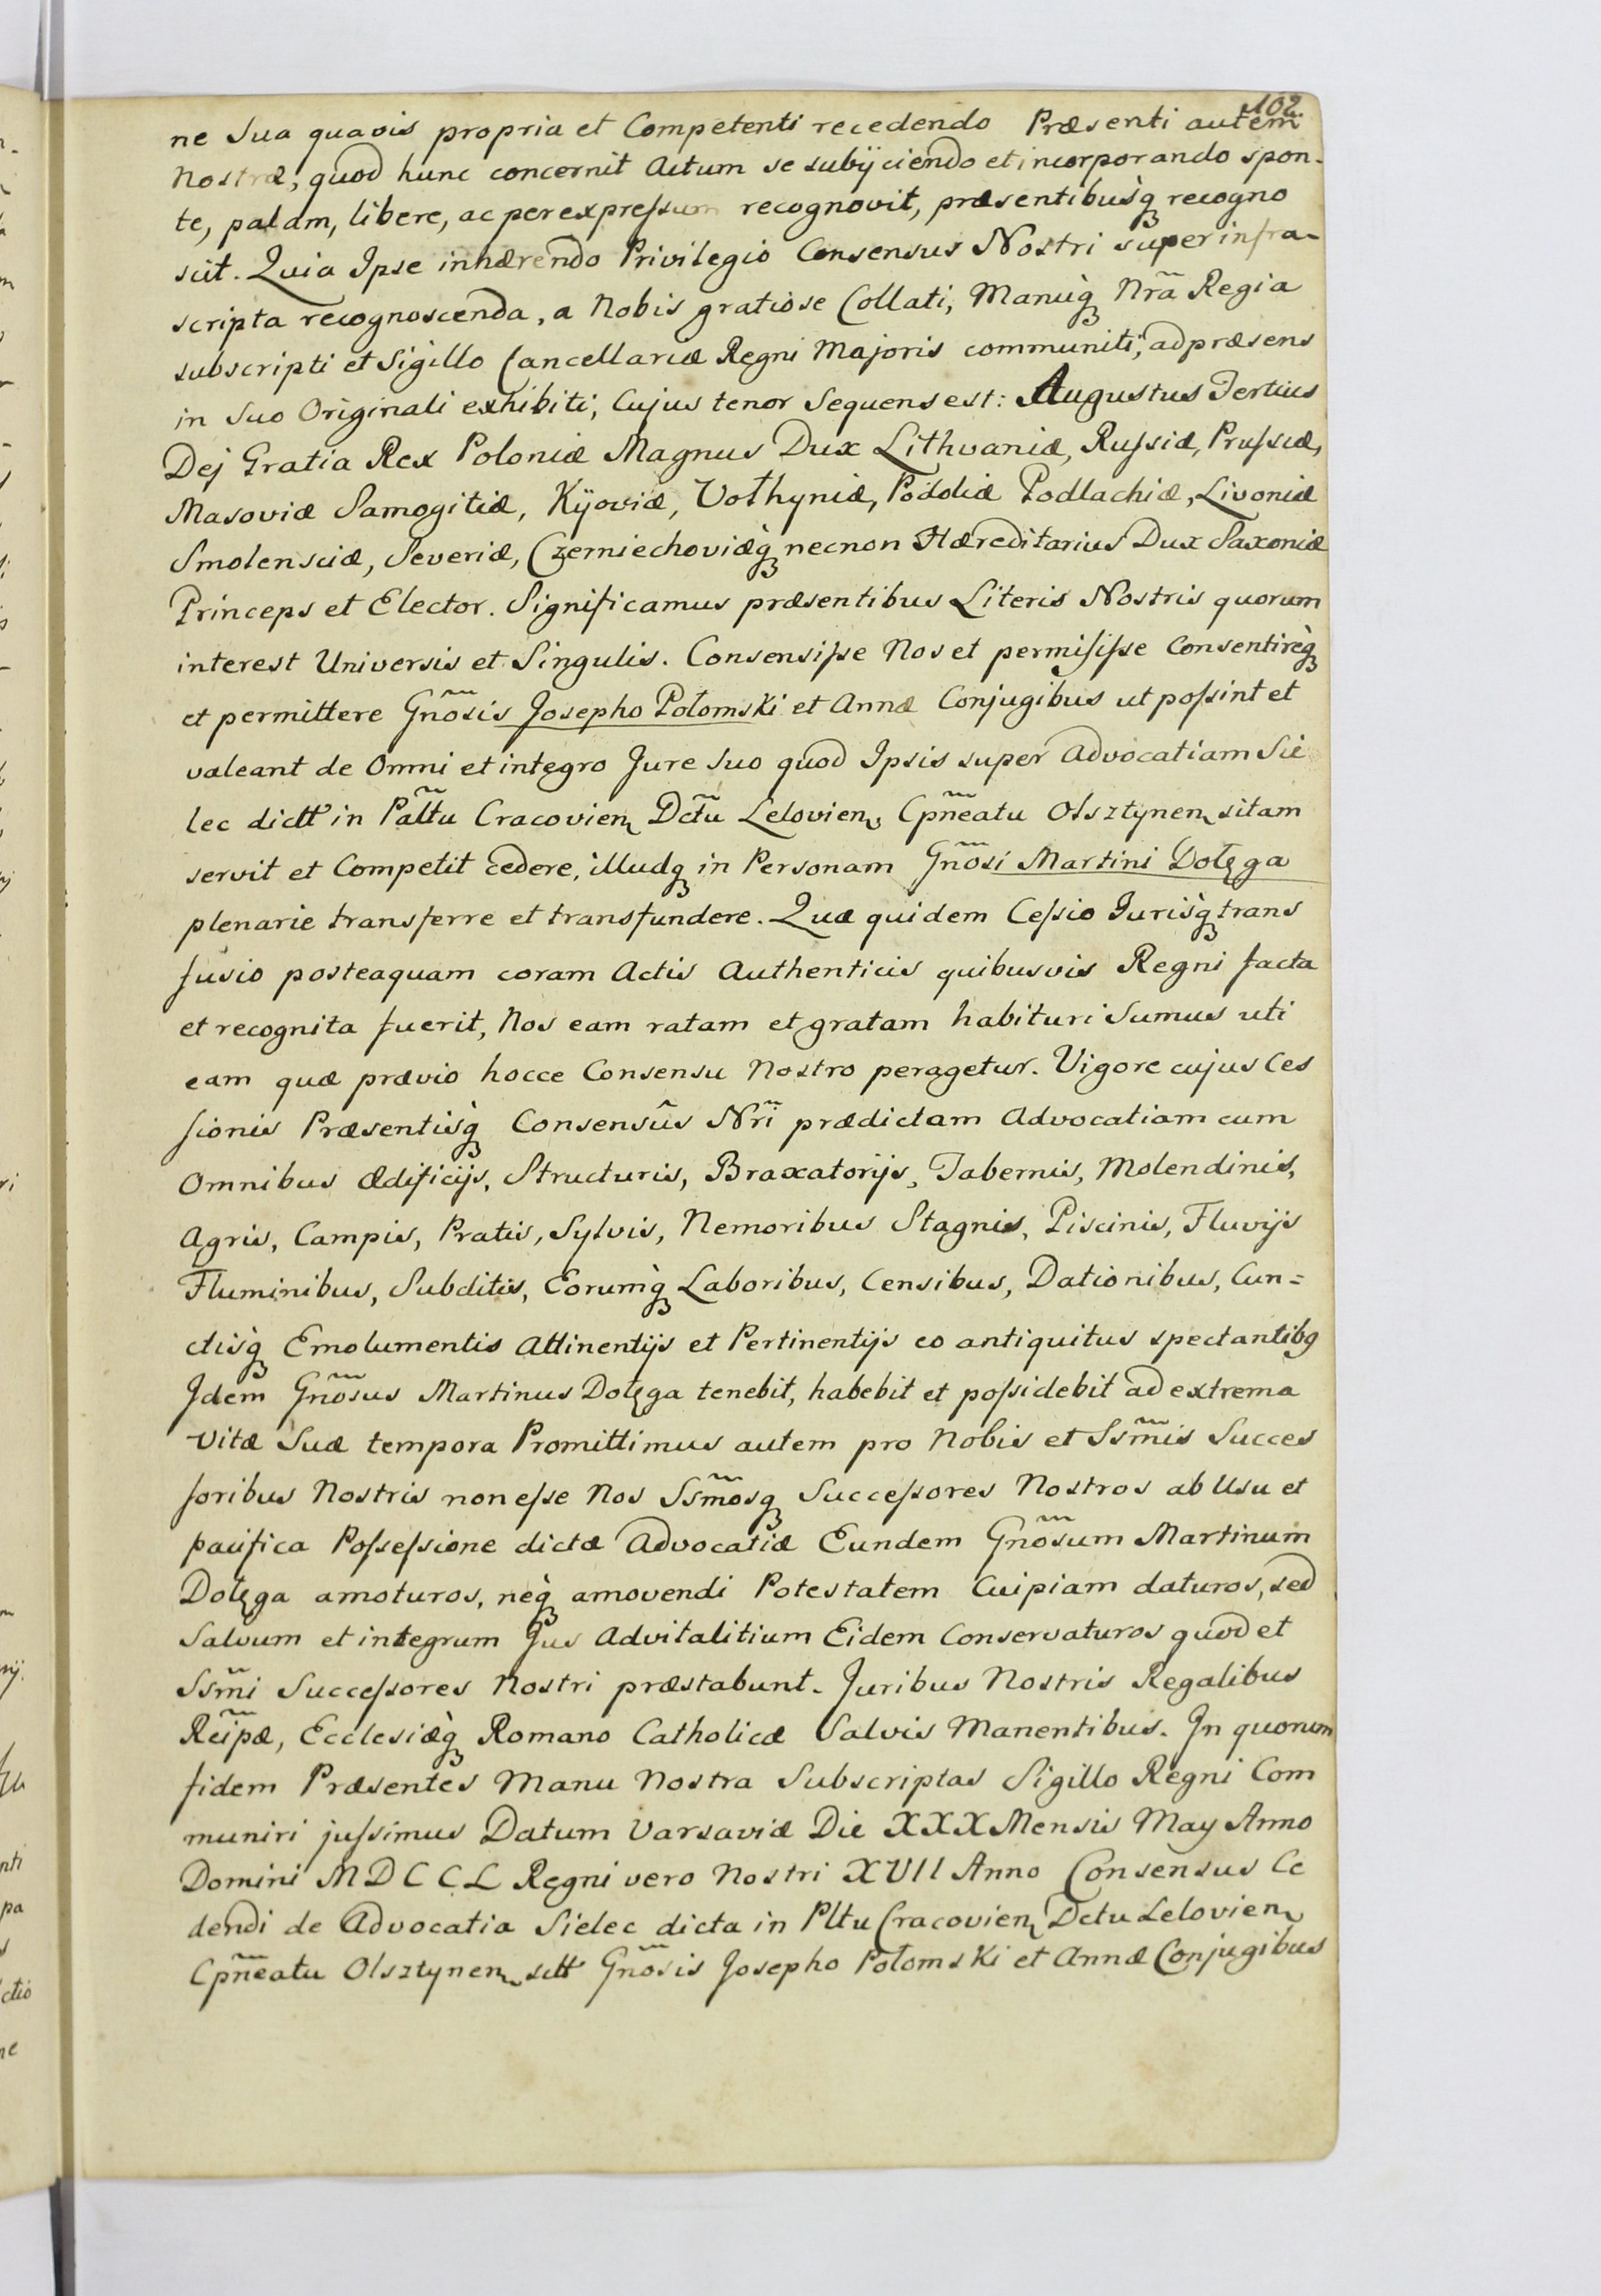 102.
ne Sua quavis propria et Competenti recedendo Præsenti autem
Nostræ, quod hunc concernit Actum se subijciendo et incorporando spon-
te, palam, libere, ac per expreſsum recognovit, præsentibusq̀ recogno
scit. Quia Ipse inhærendo Privilegio Consensus Nostri super infra-
scripta recognoscenda, a Nobis gratiose Collati, Manuq̀ Nrã Regia
subscripti et Sigillo Cancellariæ Regni Majoris communiti, ad præsens
in Suo Originali exhibiti, Cujus tenor Sequens est: Augustus Tertius
Dej Gratia Rex Poloniæ Magnus Dux Lithvaniæ, Ruſsiæ, Pruſsiæ,
Masoviæ Samogitiæ, Kÿoviæ, Vołhyniæ, Podoliæ Podlachiæ, Livoniæ
Smolensciæ, Severiæ, Czerniechoviæq̀ necnon Hæreditarius Dux Saxoniæ
Princeps et Elector. Significamus præsentibus Literis Nostris quorum
interest Universis et Singulis. Consensiſse Nos et permiſiſse Consentireq̀
et permittere Gnõsis Josepho Połomski et Annæ Conjugibus ut poſsint et
valeant de Omni et integro Jure Suo quod Ipsis super Advocatiam Sie
lec dictt in Pałtũ Cracovien Dctũ Lelovien, Cpñeatu Olsztynen sitam
servit et Competit cedere, illudq in Personam Gnõsi Martini Dołęga
plenarie transferre et transfundere. Quæ quidem Ceſsio Jurisq̀ trans
fusio posteaquam coram Actis Authenticis quibusvis Regni facta
et recognita fuerit, Nos eam ratam et gratam habituri Sumus uti
eam quæ prævio hocce Consensu Nostro peragetur. Vigore cujus Ces
ſionis Præsentisq̀ Consensûs Nrĩ prædictam Advocatiam cum
Omnibus Ædificijs, Structuris, Braxatorijs, Tabernis, Molendinis,
Agris, Campis, Pratis, Sylvis, Nemoribus Stagnis, Piscinis, Fluvijs
Fluminibus, Subditis, Eorumq̀ Laboribus, Censibus, Dationibus, Cun=
ctisq̀ Emolumentis Attinentijs et Pertinentijs eo antiquitus spectantibq
Idem Gnõsus Martinus Dołęga tenebit, habebit et poſsidebit ad extrema
Vitæ Suæ tempora Promittimus autem pro Nobis et Ssm̃is Succes
ſoribus Nostris non eſse Nos Ssm̃osq Succeſsores Nostros ab Usu et
pacifica Poſseſsione dictæ Advocatiæ Eundem Gnõsum Martinum
Dołęga amoturos, neq̀ amovendi Potestatem Cuipiam daturos, sed
Salvum et integrum Jus Advitalitium Eidem Conservaturos quod et
Ssm̃i Succeſsores Nostri præstabunt. Juribus Nostris Regalibus
Reĩpæ, Ecclesiæq̀ Romano Catholicæ Salvis Manentibus. In quorum
fidem Præsentes Manu Nostra Subscriptas Sigillo Regni Com
muniri juſsimus Datum Varsaviæ Die XXX Mensis May Anno
Domini MDCCL Regni vero Nostri XVII Anno Consensus Ce
dendi de Advocatia Sielec dicta in Pltu Cracovien Dctu Lelovien
Cpñeatu Olsztynen sitt Gnõsis Josepho Połomski et Annæ Conjugibus